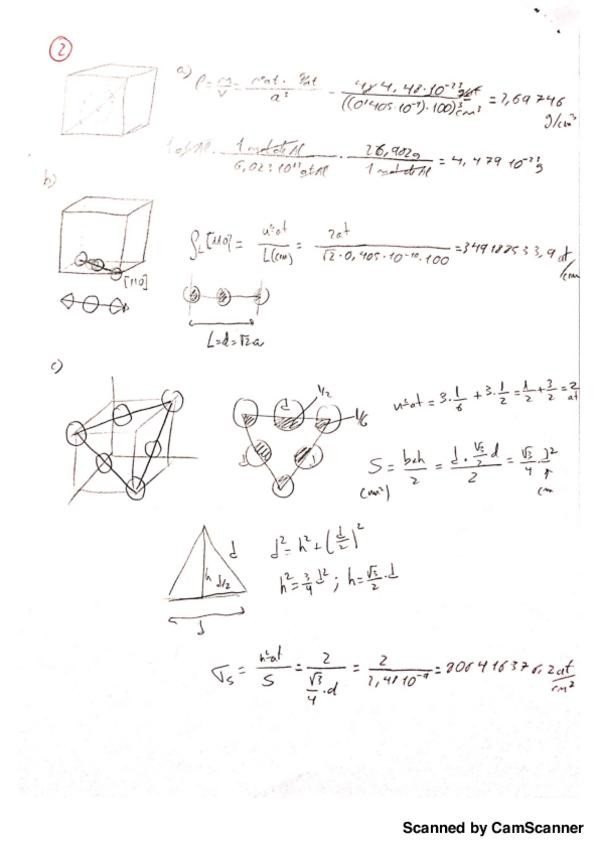 2
a) ρ = m/v = nºat · gat / a³ = 4 · 4,48·10⁻²³ gat / ((0'405·10⁻⁹)·100)³ cm³ = 2,69746 g/cm³
1 at Al · 1 mol de Al / 6,023·10²³ at Al · 26,982g / 1 mol de Al = 4,479·10⁻²³ g
b)
[110]
ρL [110] = nºat / L(cm) = 2at / √2·0,405·10⁻¹⁰·100 = 349188533,9 at/cm
L=d=√2a
c)
1/2
d
1/6
nºat = 3·1/6 + 3·1/2 = 1/2 + 3/2 = 2 at
S = b×h / 2 = d·√3/2 d / 2 = √3/4 d²
(cm²)
cm
d
h
d/2
d
d² = h² + (d/2)²
h² = 3/4 d² ; h = √3/2 · d
σs = nºat / S = 2 / √3/4 · d = 2 /
at/cm²
Scanned by CamScanner